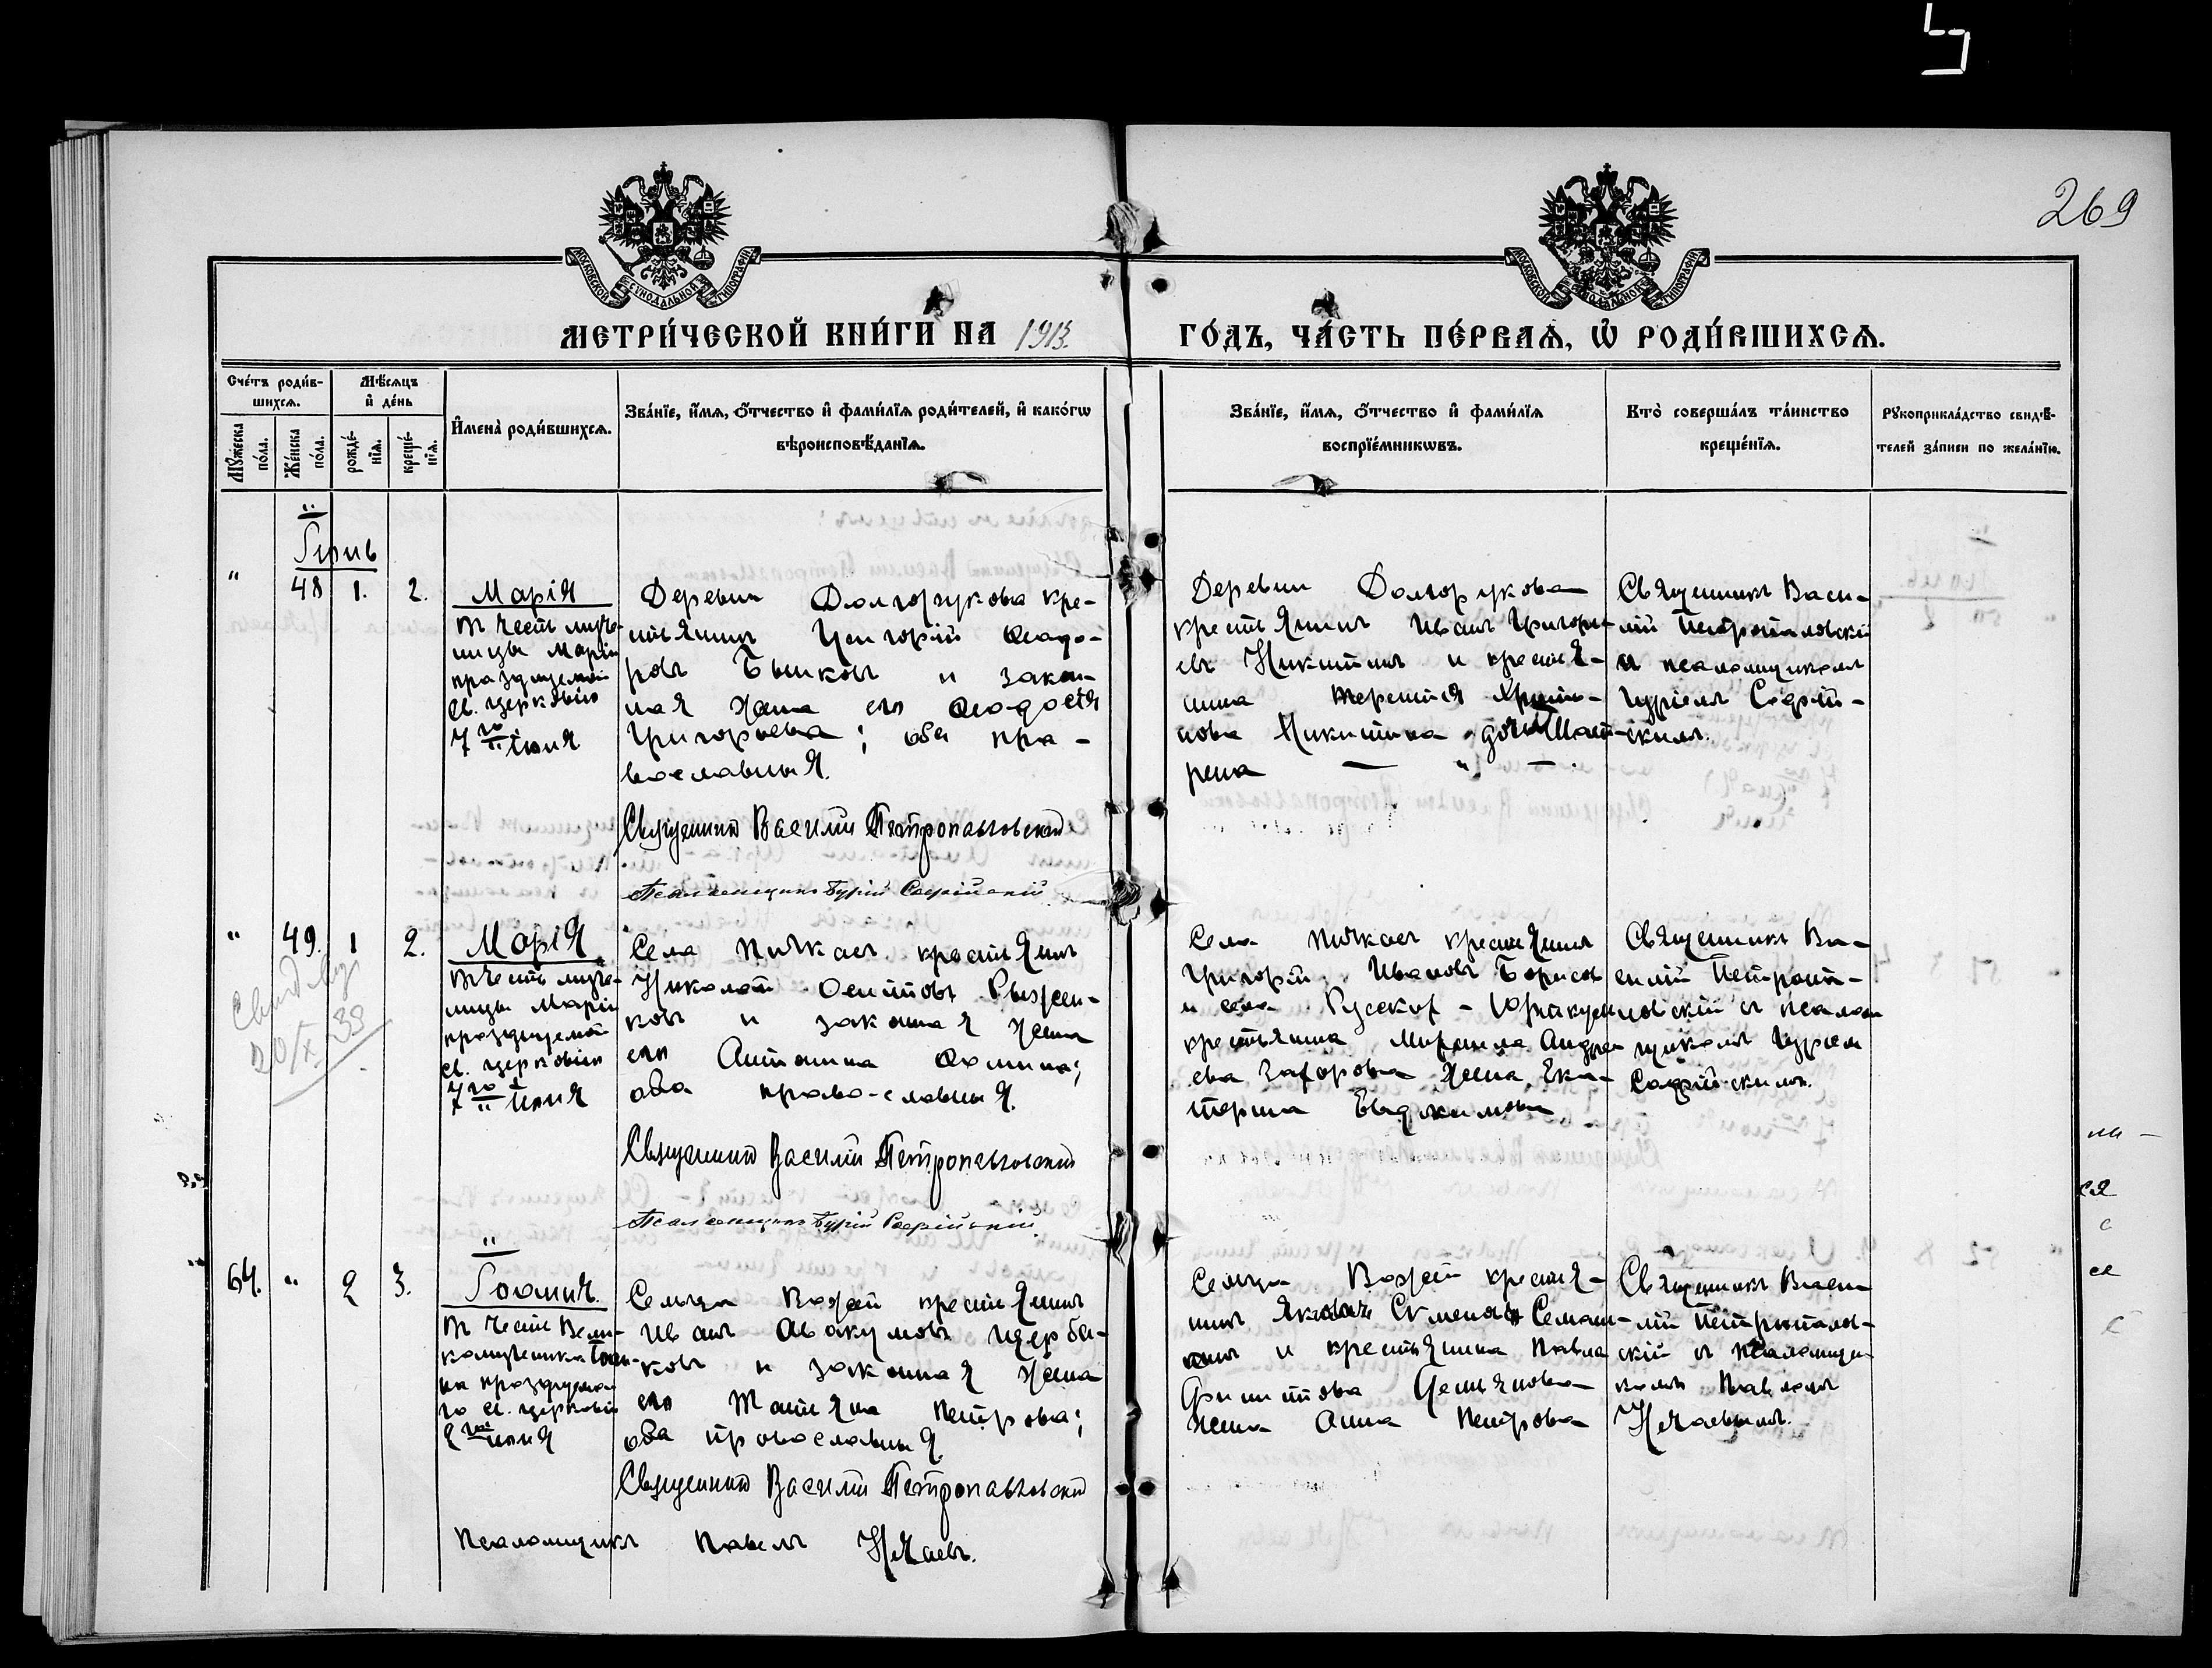 269
МОСКОВСКОЙ СѴНОДАЛЬНОЙ ТИПОГРАФІИ
МОСКОВСКОЙ СѴНОДАЛЬНОЙ ТИПОГРАФІИ
МЕТРИ́ЧЕСКОЙ КНИ́ГИ НА 1913
ГО́ДЪ, ЧА́СТЬ ПЕ́РВАѦ, Ѡ҆ РОДИ́ВШИХСѦ.
Сче́тъ роди́в-
шихсѧ.
Мѣ́сѧцъ
и҆ де́нь
Мꙋ́жеска по́ла.
Же́нска по́ла.
рожде́-
нїѧ.
креще́-
нїѧ.
И҆мена̀ роди́вшихсѧ.
Зва́нїе, и҆́мѧ, ѻ҆́тчество и҆ фами́лїѧ роди́телей, и҆ како́гѡ
вѣроисповѣ́данїѧ.
Зва́нїе, и҆́мѧ, ѻ҆́тчество и҆ фами́лїѧ
воспрїе́мникѡвъ.
Кто̀ соверша́лъ та́инство
креще́нїѧ.
Рꙋкоприкла́дство свидѣ́-
телей за́писи по жела́нїю.
Іюнь
" 48 1. 2.
Марія
Въ честь муче-
ницы Маріи
празднуемой
св. церковію
7 го іюня
Деревни Долгорукова кре-
стьянинъ Григорій Ѳеодо-
ровъ Быковъ и закон-
ная жена его Ѳеодосія
Григорьева; оба пра-
вославныя.
Священникъ Василій Петропавловскій
Псаломщикъ Гурій Софійскій.
Деревни Долгорукова
крестьянинъ Иванъ Григорь-
евъ Никитинъ и крестья-
нина Терентія
нова Никитина дочь Мат-
рена — " —.
Священникъ Васи-
лій Петропавловскій
и псаломщикомъ
Гуріемъ Софій-
скимъ.
" 49. 1 2.
Марія
Въ честь муче-
ницы Маріи
празднуемой
св. церковію
7 го іюня
Села Пичкаевъ крестьянинъ
Николай Осиповъ Рыжен-
ковъ и законная жена
его Антонина Ѳомина;
оба право-славныя.
Священникъ Василій Петропавловскій
Псаломщикъ Гурій Софійскій.
20/X 39
Села Пичкаевъ крестьянинъ
Григорій Ивановъ Борисовъ
и села Русско-
крестьянина Михаила Андре-
ева жена Ека-
терина Евдокимова.
Священникъ Ва-
силій Петропав-
ловскій и псалом-
щикомъ Гуріем
Софій-скимъ.
64. " 2 3.
Іоаннъ.
Въ честь Вели-
комученика Іоан-
на празднуемо-
го св. церковію
2 го іюня
Сельца Вяжли крестьянинъ
Иванъ Авакумовъ Щерба-
ковъ и законная жена
его Татьяна Петрова;
оба православныя.
Священникъ Василій Петропавловскій
Псаломщикъ Павелъ Нечаевъ.
Сельца крестья-
нинъ Яковъ Семеновъ
и крестьянина Павла
Филиппова
жена Анна Петрова
Священникъ Васи-
лій Петропавлов-
скій и псаломщи-
комъ Павломъ
Нечаевымъ.